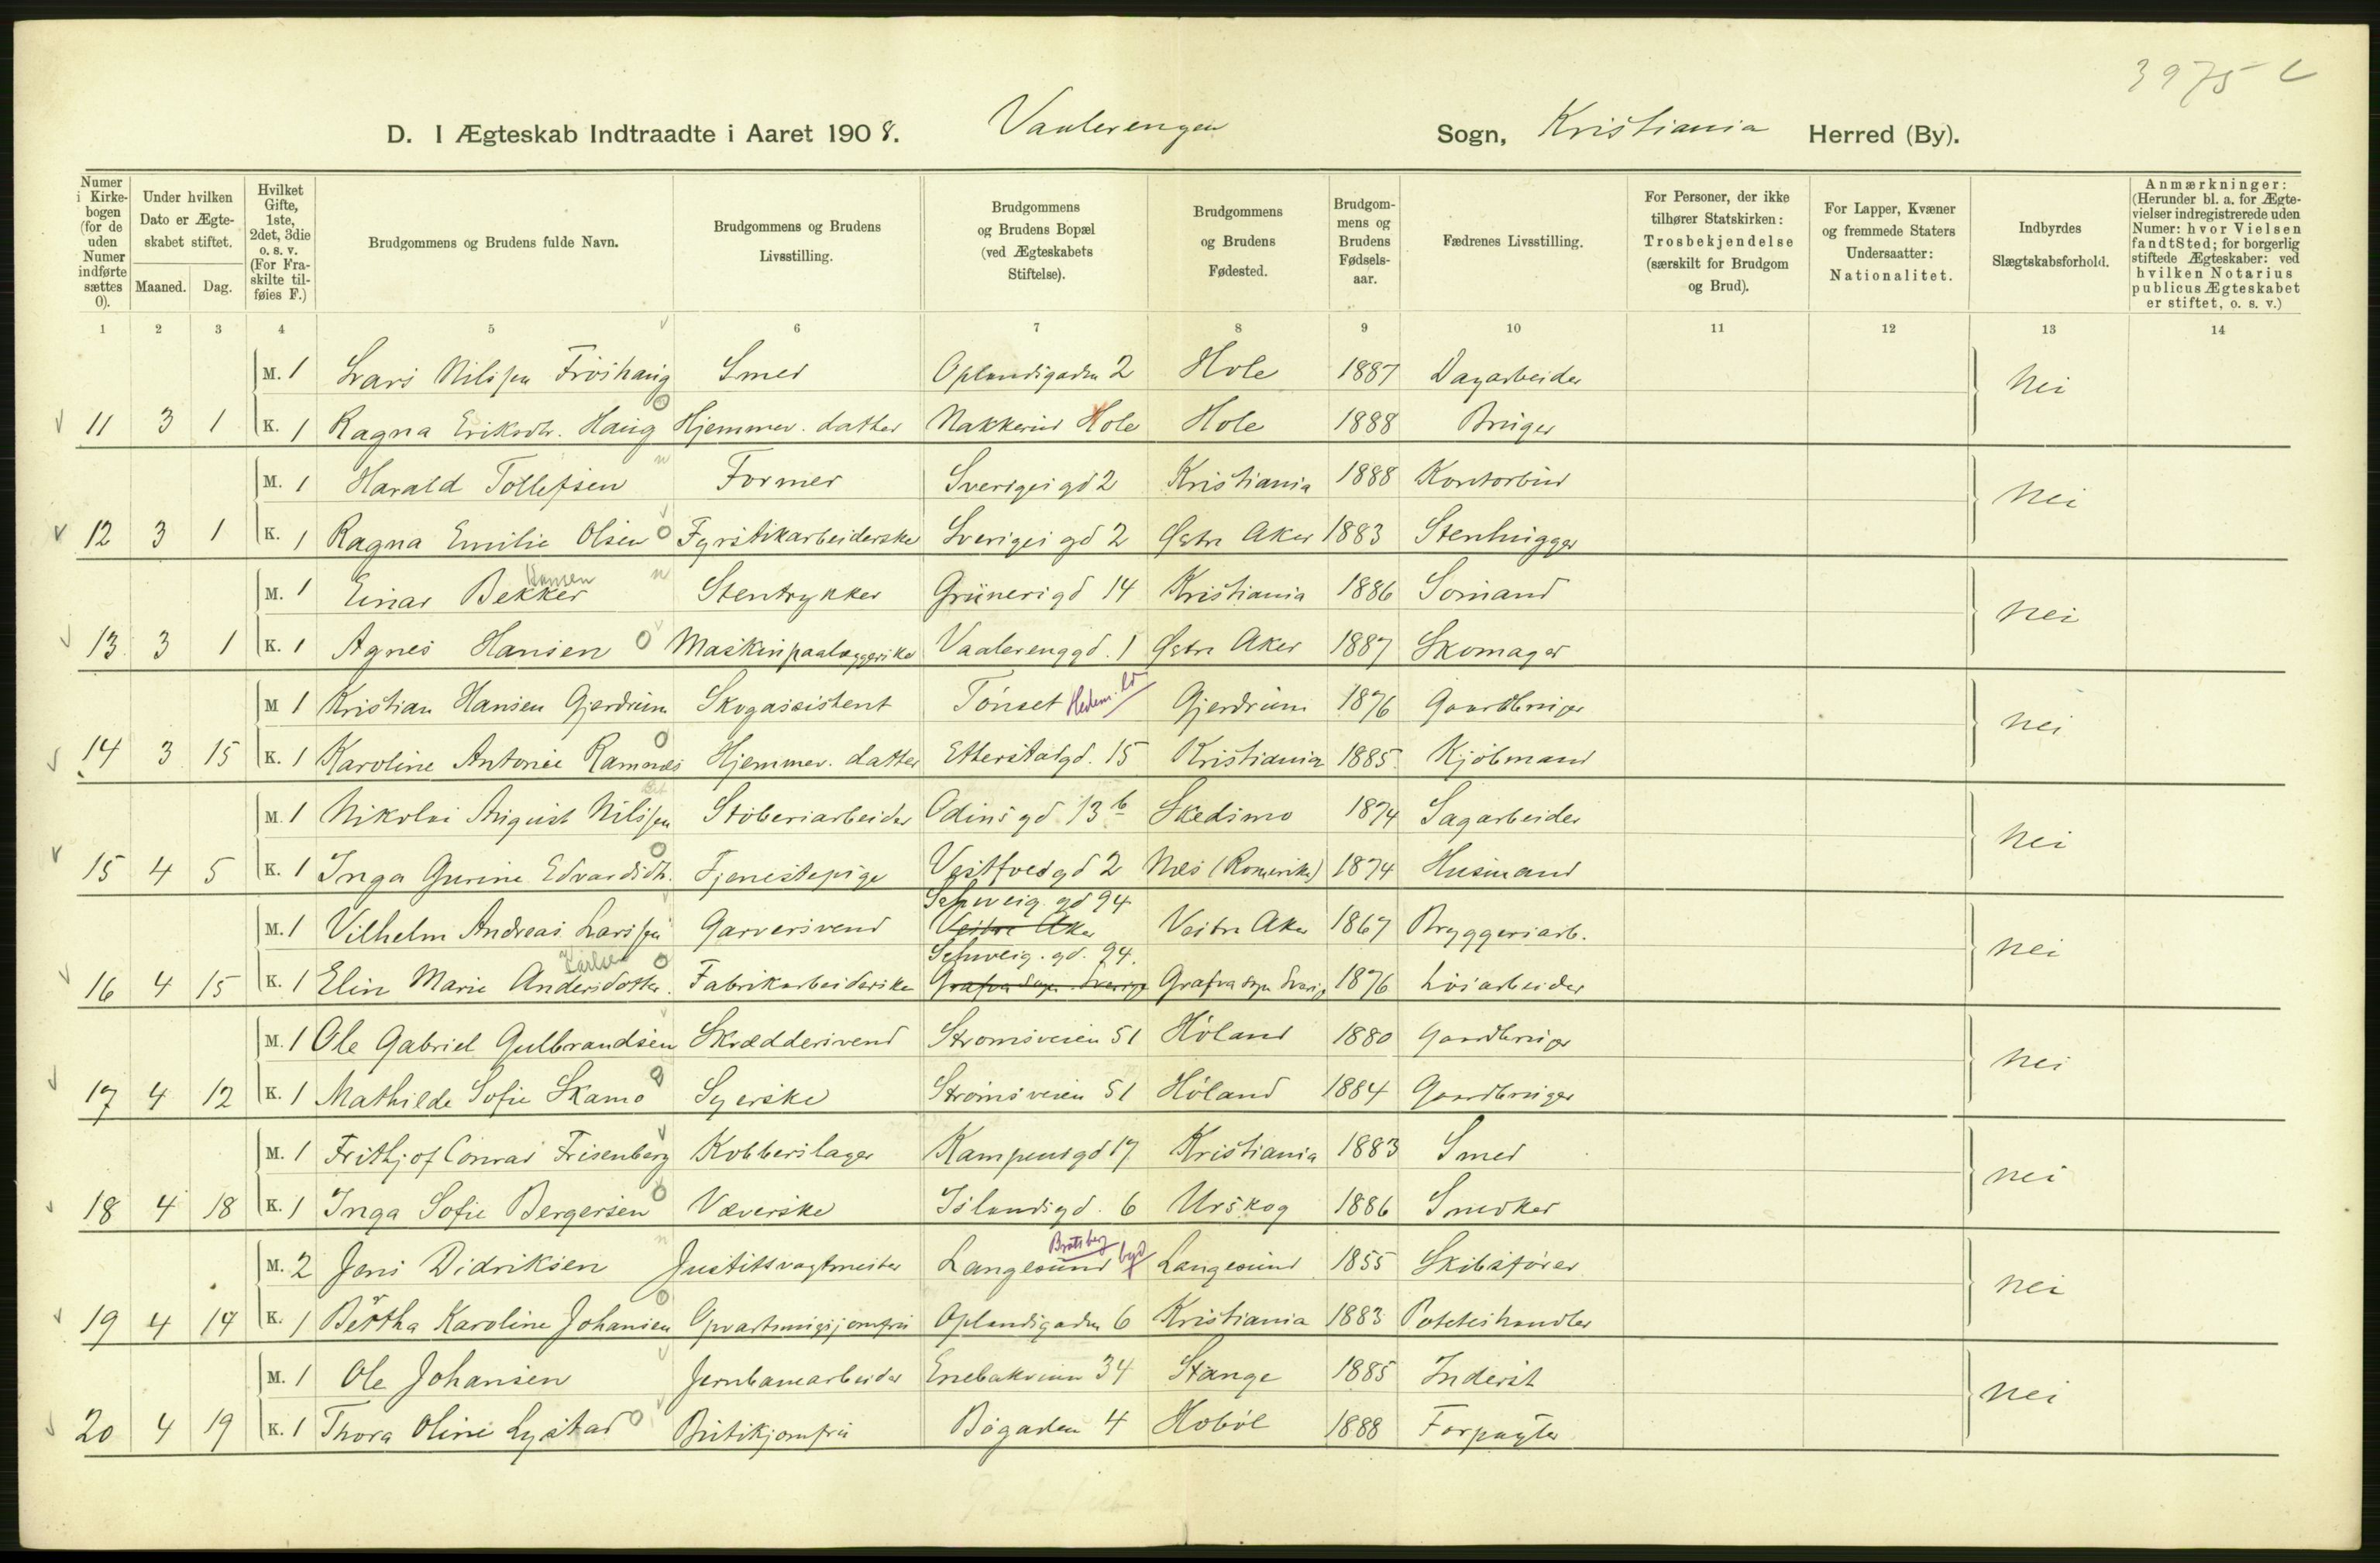 3975 C
D. I Ægteskab Indtraadte i Aaret 1908. Vaalerengen Sogn, Kristiania Herred (By).
Numer i Kirkebogen (for de uden Numer indførte sættes 0).
Under hvilken Dato er Ægteskabet stiftet.
Maaned. Dag.
Hvilket Gifte, 1ste, 2det, 3die o. s. v. (For Fraskilte tilføies F.)
Brudgommens og Brudens fulde Navn.
Brudgommens og Brudens Livsstilling.
Brudgommens og Brudens Bopæl (ved Ægteskabets Stiftelse).
Brudgommens og Brudens Fødested.
Brudgommens og Brudens Fødselsaar.
Fædrenes Livsstilling.
For Personer, der ikke tilhører Statskirken: Trosbekjendelse (særskilt for Brudgom og Brud).
For Lapper, Kvæner og fremmede Staters Undersaatter: Nationalitet.
Indbyrdes Slægtskabsforhold.
Anmærkninger: (Herunder bl. a. for Ægtevielser indregistrerede uden Numer: hvor Vielsen fandt Sted; for borgerlig stiftede Ægteskaber: ved hvilken Notarius publicus Ægteskabet er stiftet, o. s. v.)
1 2 3 4 5 6 7 8 9 10 11 12 13 14
M. 1 Lars Nilssen Fröshaug Smed Oplandsgaden 2 Hole 1887 Dagarbeider nei
11 3 1 K. 1 Ragna Eriksdtr. Haug Hjemmev. datter Nakkerud Hole Hole 1888 Bruger
M. 1 Harald Tollefsen Former Sverigesgd 2 Kristiania 1888 Kontorbud nei
12 3 1 K. 1 Ragna Emilie Olsen Fyrstikarbeiderske Sveriges gd 2 Østre Aker 1883 Stenhugger
M. 1 Einar Hansen Bekker Stentrykker Grünersgd 14 Kristiania 1886 Sömand nei
13 3 1 K. 1 Agnes Hansen Maskinpaalæggerske Vaalerenggd. 1 Østre Aker 1887 Skomager
M 1 Kristian Hansen Gjerdrum Skogassistent Tönset Hedem. Gjerdrum 1876 Gaardbruger nei
14 3 15 K. 1 Karoline Antonie Ramnæs Hjemmev. datter Etterstadgd. 15 Kristiania 1885 Kjöbmand
M. 1 Nikolai August Nilssen Stöberiarbeider Odins gd 13 b Skedsmo 1874 Sagarbeider nei
15 4 5 K. 1 Inga Gurine Edvardsdtr. Tjenestepige Vestfoldgd 2 Nes (Romerike) 1874 Husmand
Schweig. gd 94
M. 1 Vilhelm Andreas Larssen Garversvend Vestre Aker Vestre Aker 1867 Bryggeriarb. nei
Karlsen Schweig. gd. 94.
16 4 15 K. 1 Elin Marie Andersdotter. Fabrikarbeiderske Grafva sogn Sverige Grafva sogn Sverige 1876 Lösarbeider
M. 1 Ole Gabriel Gulbrandsen Skrædderivend Strömsveien 51 Höland 1880 Gaardbruger nei
17 4 12 K. 1 Mathilde Sofie Skamo Syerske Strömsveien 51 Höland 1884 Gaardbruger
M. 1 Frithjof Conrad Frisenberg Kobberslager Kampensgd 17 Kristiania 1883 Smed nei
18 4 18 K. 1 Inga Sofie Bergersen Væverske Islandsgd. 6 Urskog 1886 Snedker
Bratsberg
M. 2 Jens Didriksen Justitsvagtmester Langesund by Langesund 1855 Skibsförer nei
19 4 14 K. 1 Bertha Karoline Johansen Opvartningsjomfru Oplandsgaden 6 Kristiania 1883 Poteteshandler
M. 1 Ole Johansen Jernbanearbeider Enebakveien 34 Stange 1885 Inderst nei
20 4 19 K. 1 Thora Oline Lystad Butikjomfru Bögaden 4 Hobøl 1888 Forpagter